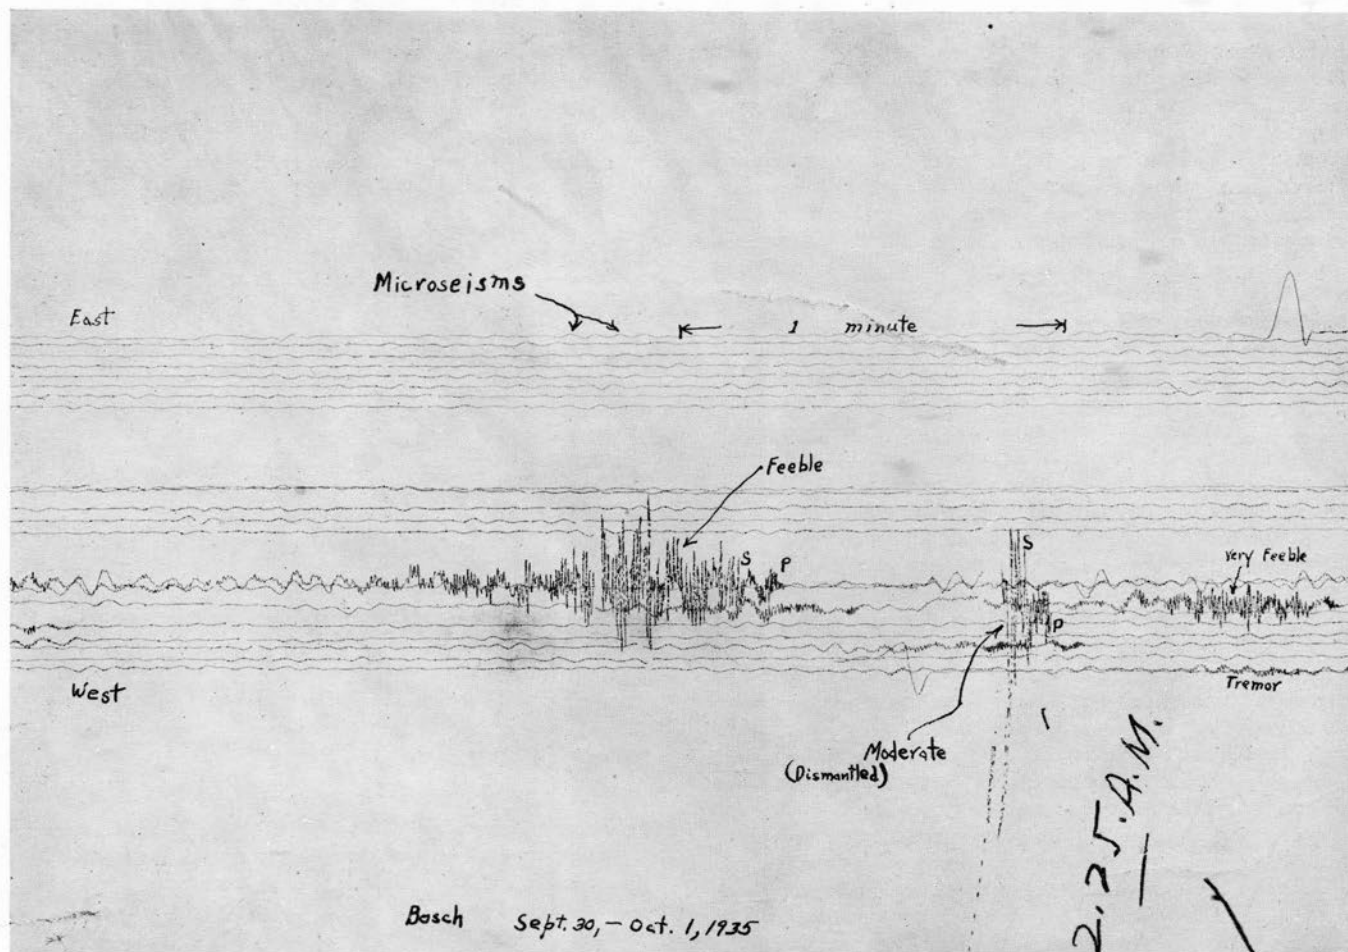 Microseisms
East
1 minute
Feeble
S P
S
very Feeble
P
West
Tremor
Moderate
(Dismantled)
2.25.A.M.
Bosch Sept. 30, — Oct. 1, 1935